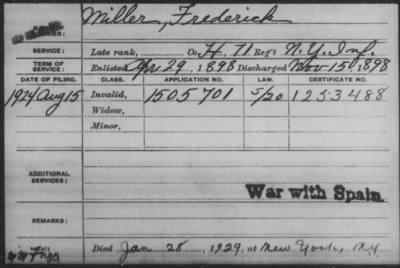 Miller, Frederick
SERVICE: Late rank, Co. H, 71 Reg't N.Y. Inf.
TERM OF SERVICE: Enlisted Apr 29, 1898 Discharged Nov 15, 1898
DATE OF FILING. CLASS. APPLICATION NO. LAW. CERTIFICATE NO.
1924 Aug 15 Invalid, 1505701 5/20 1253488
Widow,
Minor,
ADDITIONAL SERVICES:
War with Spain
REMARKS:
Died Jan 28, 1929, at New York, N.Y.